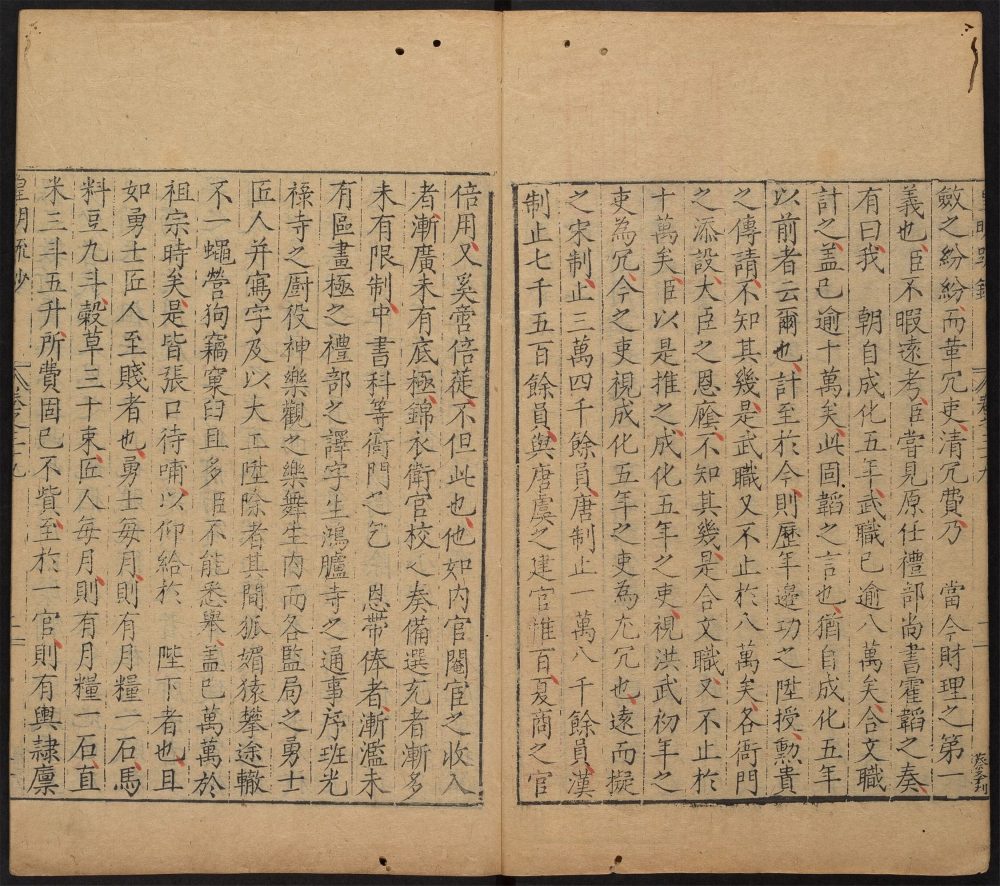 斂之紛紛而革冗吏清冗費乃 當今財理之第一
義也臣不暇遠考臣嘗見原任禮部尚書霍韜之奏
有曰我 朝自成化五年武職已逾八萬矣合文職
計之盖已逾十萬矣此固韜之言也猶自成化五年
以前者云爾也計至於今則歷年邊功之陞授勲貴
之傳請不知其幾是武職又不止於八萬矣各衙門
之添設大臣之恩廕不知其幾是合文職又不止於
十萬矣臣以是推之成化五年之吏視洪武初年之
吏為冗今之吏視成化五年之吏為尢冗也遠而擬
之宋制止三萬四千餘員唐制止一萬八千餘員漢
制止七千五百餘員與唐虞之建官惟百夏商之官
倍用又奚啻倍蓰不但此也他如内官閹宦之收入
者漸廣未有底極錦衣衛官校之奏備選充者漸多
未有限制中書科等衙門之乞 恩帶俸者漸濫未
有區畫極之禮部之譯字生鴻臚寺之通事序班光
祿寺之厨役神樂觀之樂舞生内而各監局之勇士
匠人并寫字及以大工陞除者其間狐媚猿攀途轍
不一蠅營狗竊窠臼且多臣不能悉舉盖已萬萬於
祖宗時矣是皆張口待哺以仰給於 陛下者也且
如勇士匠人至賤者也勇士每月則有月糧一石馬
料豆九斗穀草三十束匠人每月則有月糧一石直
米三斗五升所費固已不貲至於一官則有輿隷廪
皇明疏鈔 卷之二十九 二